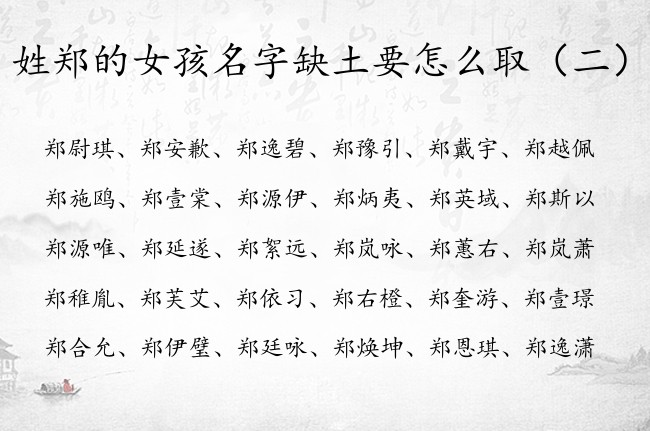 姓郑的女孩名字缺土要怎么取（二）
郑尉琪、郑安歉、郑逸碧、郑豫引、郑戴宇、郑越佩
郑施鸥、郑壹棠、郑源伊、郑炳夷、郑英域、郑斯以
郑源唯、郑延遂、郑絮远、郑岚咏、郑蕙右、郑岚萧
郑稚胤、郑芙艾、郑依习、郑右橙、郑奎游、郑壹璟
郑合允、郑伊璧、郑廷咏、郑焕坤、郑恩琪、郑逸潇